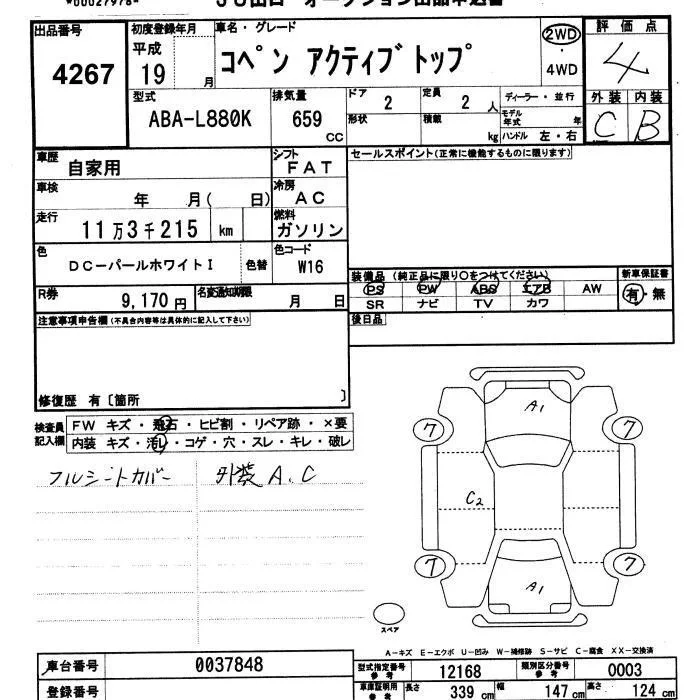 *00027978-
JU山口 オークション出品申込書
出品番号 初度登録年月 車名・グレード 2WD 評価点
4267 平成 19 月 コペン アクティブトップ 4WD 4
型式 排気量 ドア 2 定員 2 人 ディーラー・並行 外装 内装
ABA-L880K 659 CC 形状 積載 kg モデル年式 年 ハンドル 左・右 C B
車歴 自家用 シフト FAT セールスポイント(正常に機能するものに限ります)
車検 年 月( 日) 冷房 AC
走行 11万3千215 km 燃料 ガソリン
色 DC-パールホワイトI 色替 色コード W16
装備品 (純正品に限り○をつけてください) 新車保証書
PS PW ABS エアB AW 有・無
SR ナビ TV カワ
R券 9,170円 名変通知期限 月 日
後日品
注意事項申告欄(不具合内容等は具体的に記入して下さい)
修復歴 有〔箇所 〕
検査員記入欄 FW キズ・飛石・ヒビ割・リペア跡・×要
内装 キズ・汚レ・コゲ・穴・スレ・キレ・破レ
フルシートカバー 外装 A.C
A1
7 7
C2
7 7
A1
スペア
A-キズ E-エクボ U-凹み W-補修跡 S-サビ C-腐食 XX-交換済
車台番号 0037848 型式指定番号 参考 12168 類別区分番号 参考 0003
登録番号 車庫証明用 参考 長さ 339 cm 幅 147 cm 高さ 124 cm